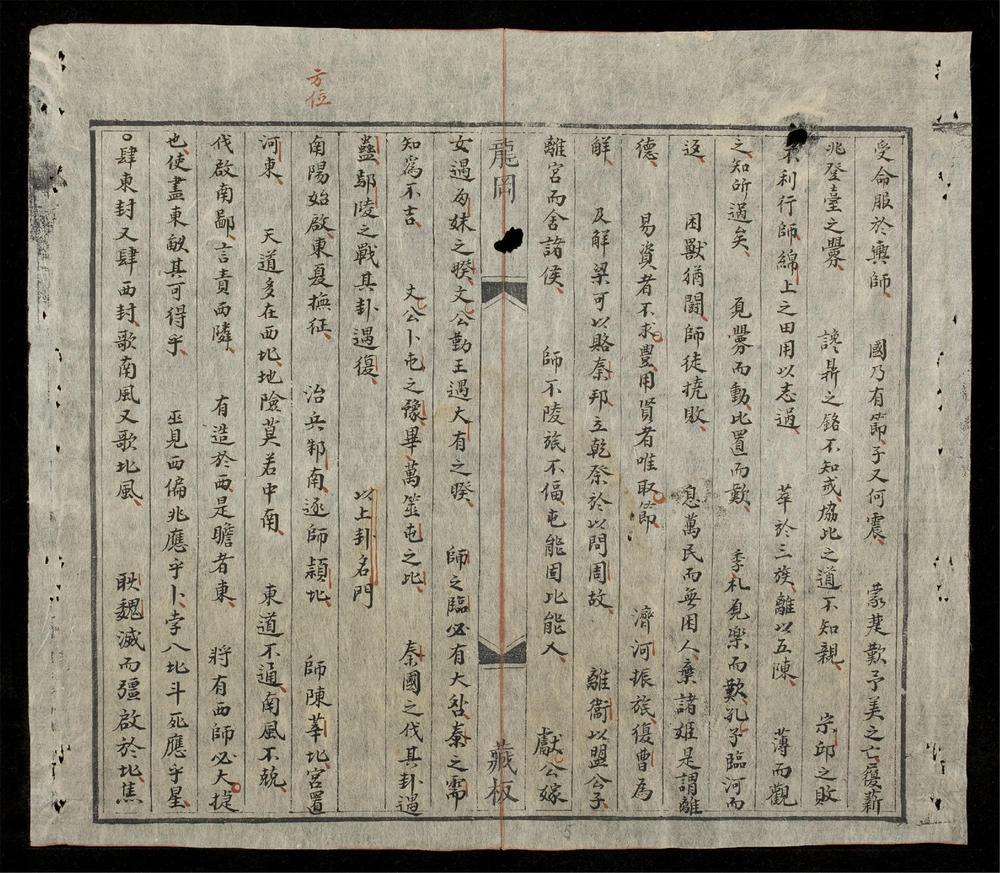 受命服於輿師　國乃有節子又何震　蒙楚歎予美之亡復薪
兆登臺之釁　讒鼎之銘不知戒協比之道不知親　宗邱之敗
不利行師綿上之田用以志過　萃於三族離以五陳　薄而觀
之知所過矣　見釁而動比置而歎　季札見樂而歎孔子臨河而
返　困獸猶鬪師徒撓敗　息萬民而無困人棄諸姬是謂離
德　易資者不求豊用賢者唯取節　濟河振旅復曹為
解　及解梁可以賂秦邦立乾祭於以問周故　離衛以盟公子
離宮而舍諸侯　師不陵旅不偪屯能固比能入　獻公嫁
龍岡　藏板
女遇為妹之暌文公勤王遇大有之暌　師之臨必有大咎秦之需
知為不吉　文公卜屯之豫畢萬筮屯之比　秦國之伐其卦遇
蠱鄢陵之戰其卦遇復　以上卦名門
方位
南陽始啟東夏撫征　治兵邾南逐師潁北　師陳莘北宮置
河東　天道多在西北地險莫若中南　東道不通南風不競
伐啟南鄙言責西隣　有造於西是瞻者東　將有西師必大捷
也使盡東畝其可得乎　巫見西偏兆應乎卜孛入北斗死應乎星
肆東封又肆西封歌南風又歌北風　耿魏滅而彊啟於北焦